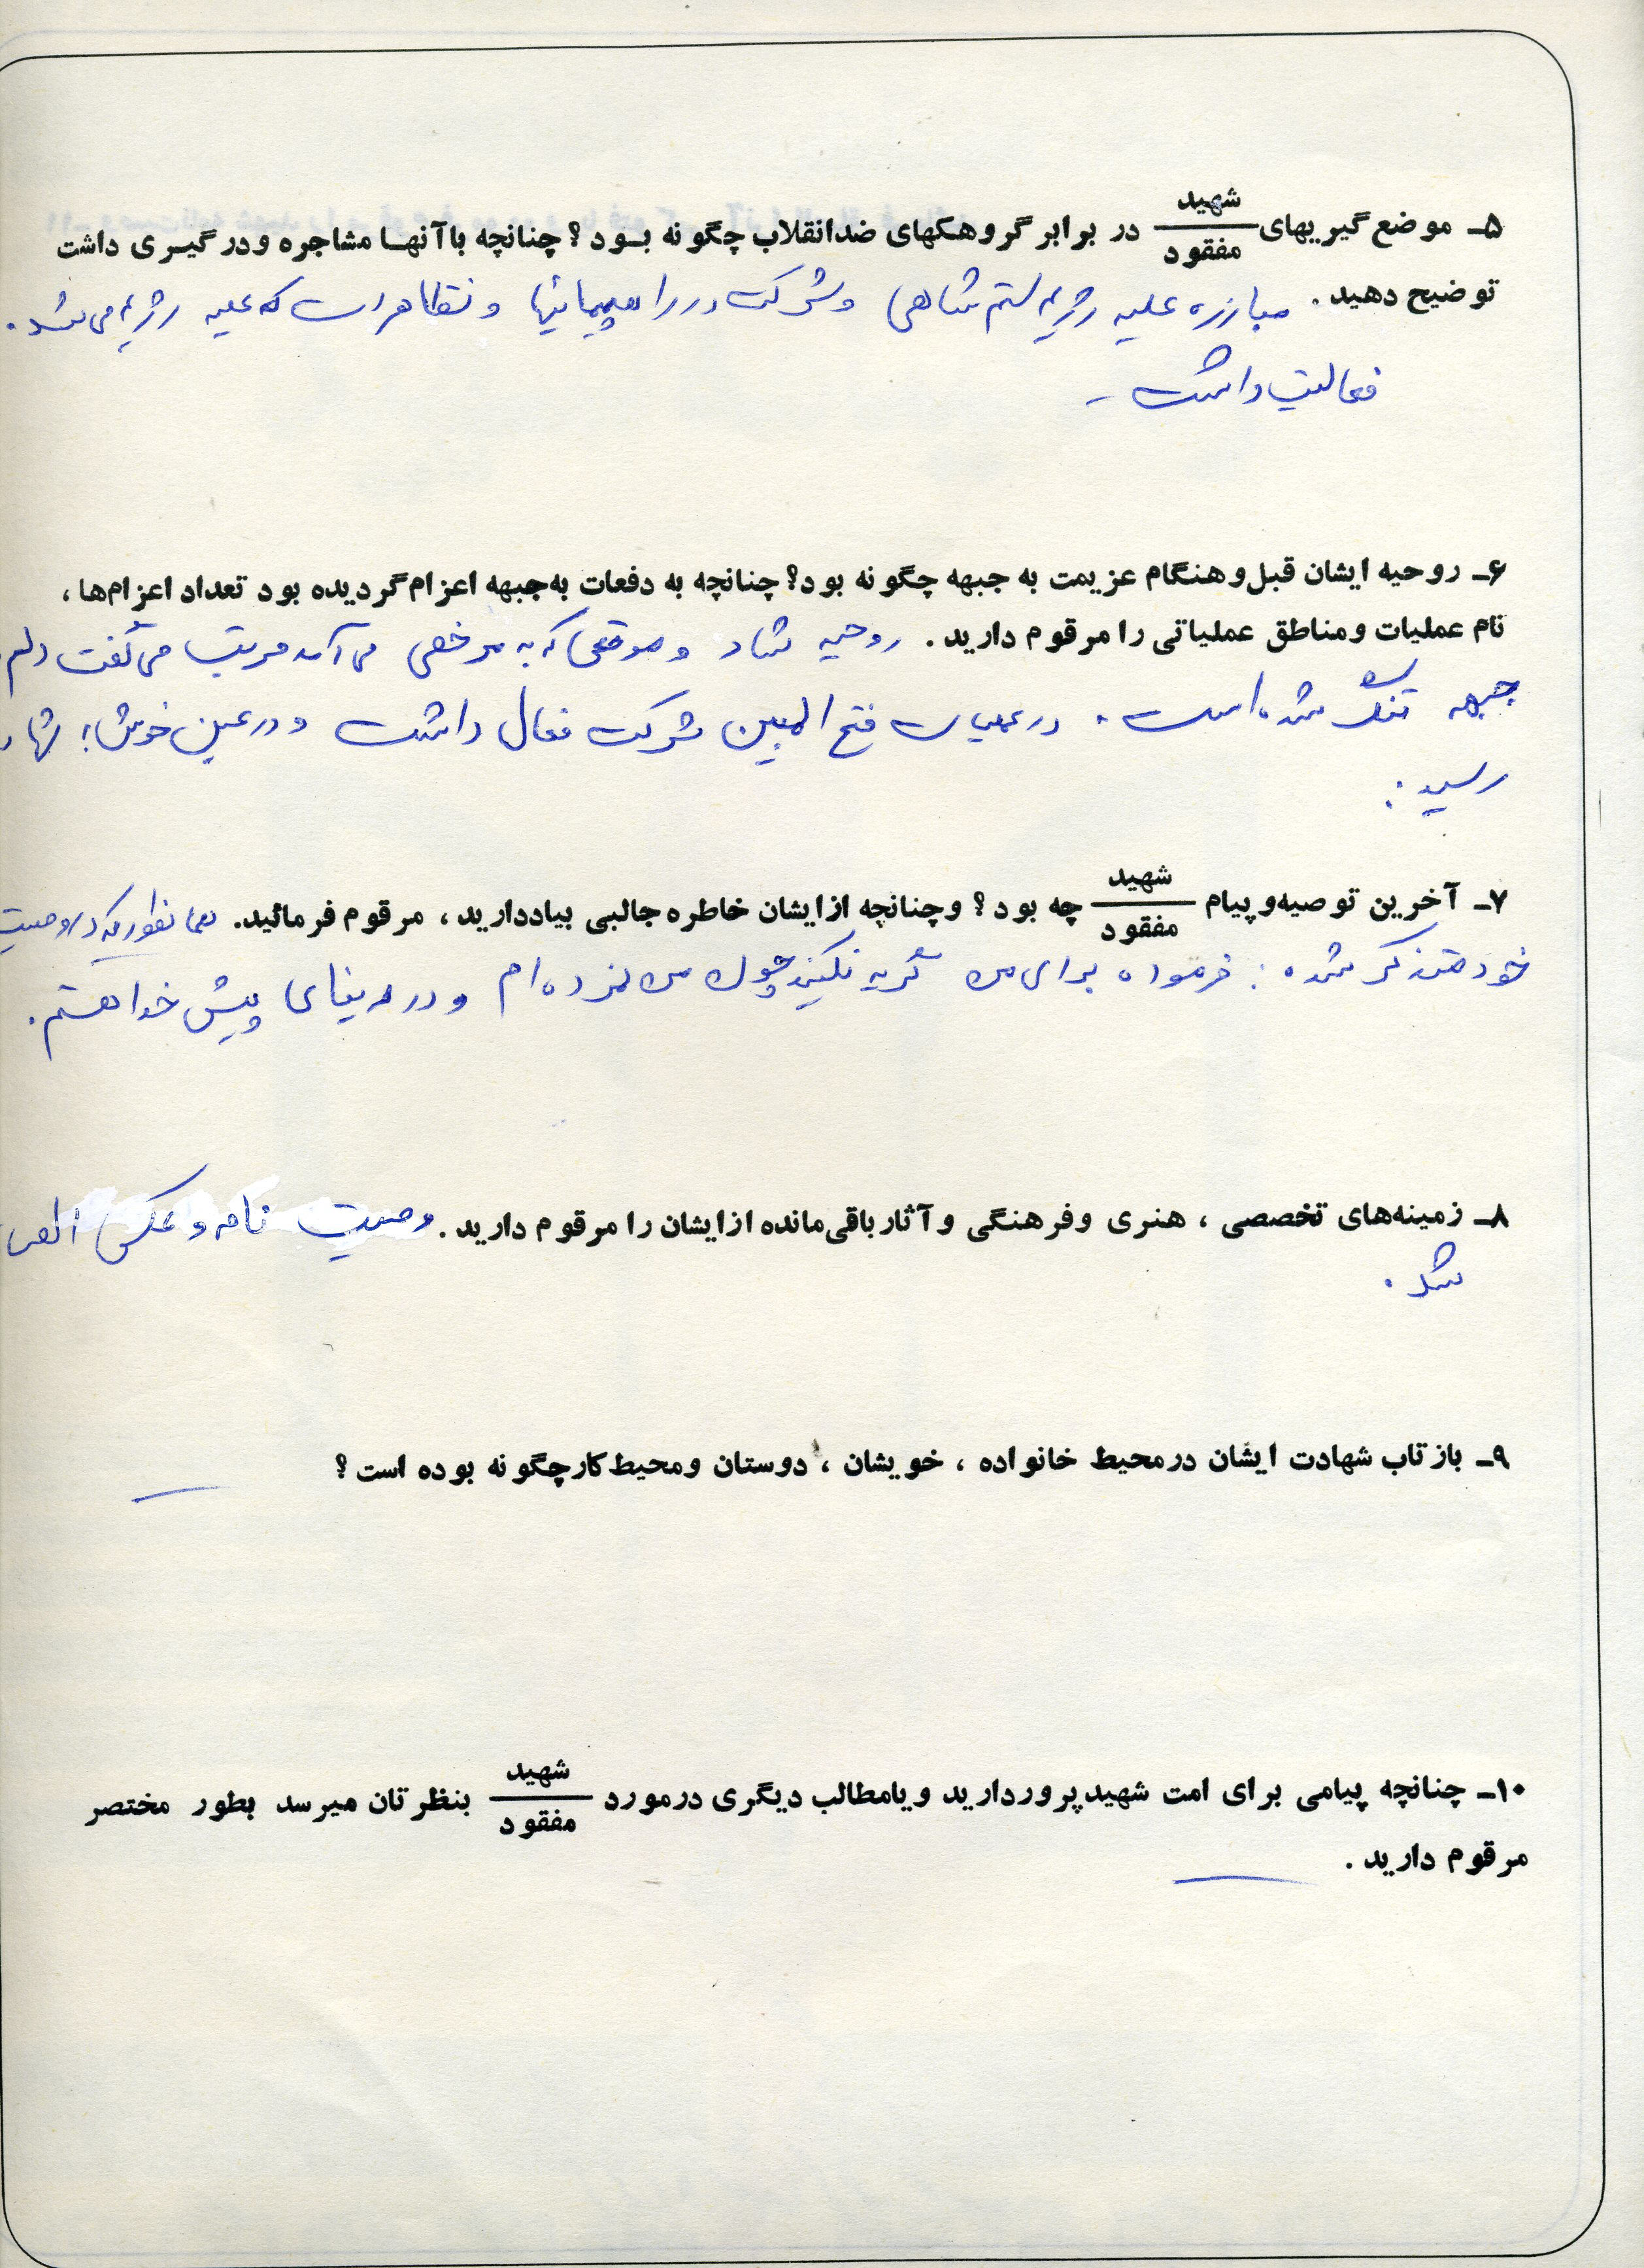 ۵ـ موضع گیریهای شهید / مفقود در برابر گروهکهای ضدانقلاب چگونه بود؟ چنانچه باآنها مشاجره ودرگیری داشت
توضیح دهید. مبارزه علیه رژیم ستم شاهی و شرکت در راهپیمائیها و تظاهرات که علیه رژیم می شد.
فعالیت داشت -
۶ـ روحیه ایشان قبل وهنگام عزیمت به جبهه چگونه بود؟ چنانچه به دفعات به جبهه اعزام گردیده بود تعداد اعزام‌ها،
نام عملیات ومناطق عملیاتی را مرقوم دارید. روحیه شاد و موقعی که به مرخصی می آمد مرتب می گفت دلم
جبهه تنگ شده است. در عملیات فتح المبین شرکت فعال داشت و در عین خوش
رسید.
۷ـ آخرین توصیه‌وپیام شهید / مفقود چه بود؟ وچنانچه ازایشان خاطره جالبی بیاددارید، مرقوم فرمائید. همانطوریکه در وصیت
خود متذکر شده: فرموده برای من گریه نکنید چون من نمرده ام و در دنیای پیش خدا هستم.
۸ـ زمینه‌های تخصصی، هنری وفرهنگی وآثارباقی‌مانده ازایشان را مرقوم دارید. وصیت نامه و عکس
شد.
۹ـ بازتاب شهادت ایشان درمحیط خانواده، خویشان، دوستان ومحیط کارچگونه بوده است؟
۱۰ـ چنانچه پیامی برای امت شهیدپروردارید ویامطالب دیگری درمورد شهید / مفقود بنظرتان میرسد بطور مختصر
مرقوم دارید.